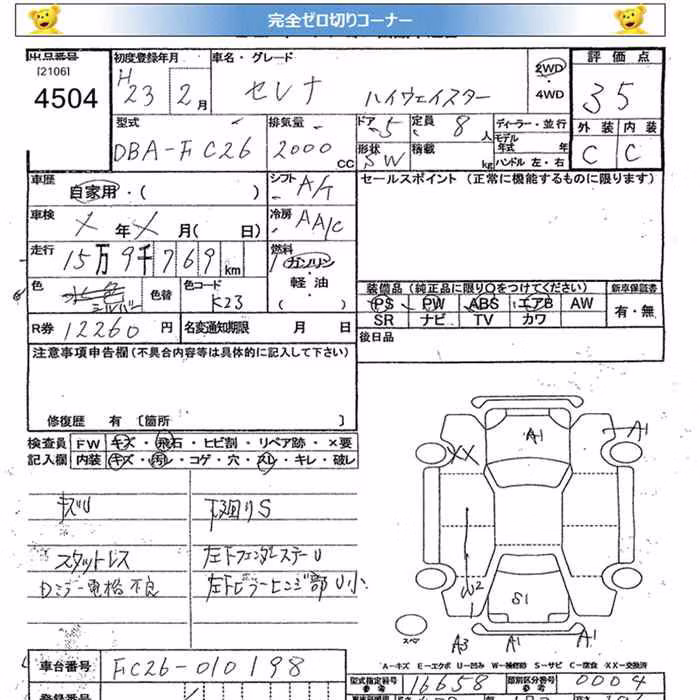 完全ゼロ切りコーナー
出品番号 初度登録年月 車名・グレード 評価点
[2106] H 2WD
4504 23 2月 セレナ ハイウェイスター ・4WD 35
型式 排気量 ドア 5 定員 8人 ディーラー・並行 外装 内装
DBA-FC26 2000CC 形状 SW 積載 kg モデル年式 年 C C
ハンドル 左・右
車歴 自家用・( ) シフト A/T セールスポイント (正常に機能するものに限ります)
車検 X年X月( 日) 冷房 AA/C
走行 15万9千769km 燃料 ガソリン
色 シルバー 色替 色コード K23 軽油 ( )
装備品 (純正品に限り○をつけてください) 新車保証書
PS PW ABS エアB AW 有・無
SR ナビ TV カワ
R券 12260円 名変通知期限 月 日 後日品
注意事項申告欄(不具合内容等は具体的に記入して下さい)
修復歴 有〔箇所 〕
検査員 FW キズ・飛石・ヒビ割・リペア跡・×要
記入欄 内装 キズ・汚レ・コゲ・穴・スレ・キレ・破レ
キズU 下廻りS
スタットレス 左下フェンダーステーU
Dミラー電格不良 左下ピラーヒンジ部U小
A1 A1
XX
W2
S1
スペア A3 A1 A1
A-キズ E-エクボ U-凹み W-補修跡 S-サビ C-腐食 XX-交換済
車台番号 FC26-010198 型式指定番号 参考 16658 類別区分番号 参考 0004
登録番号